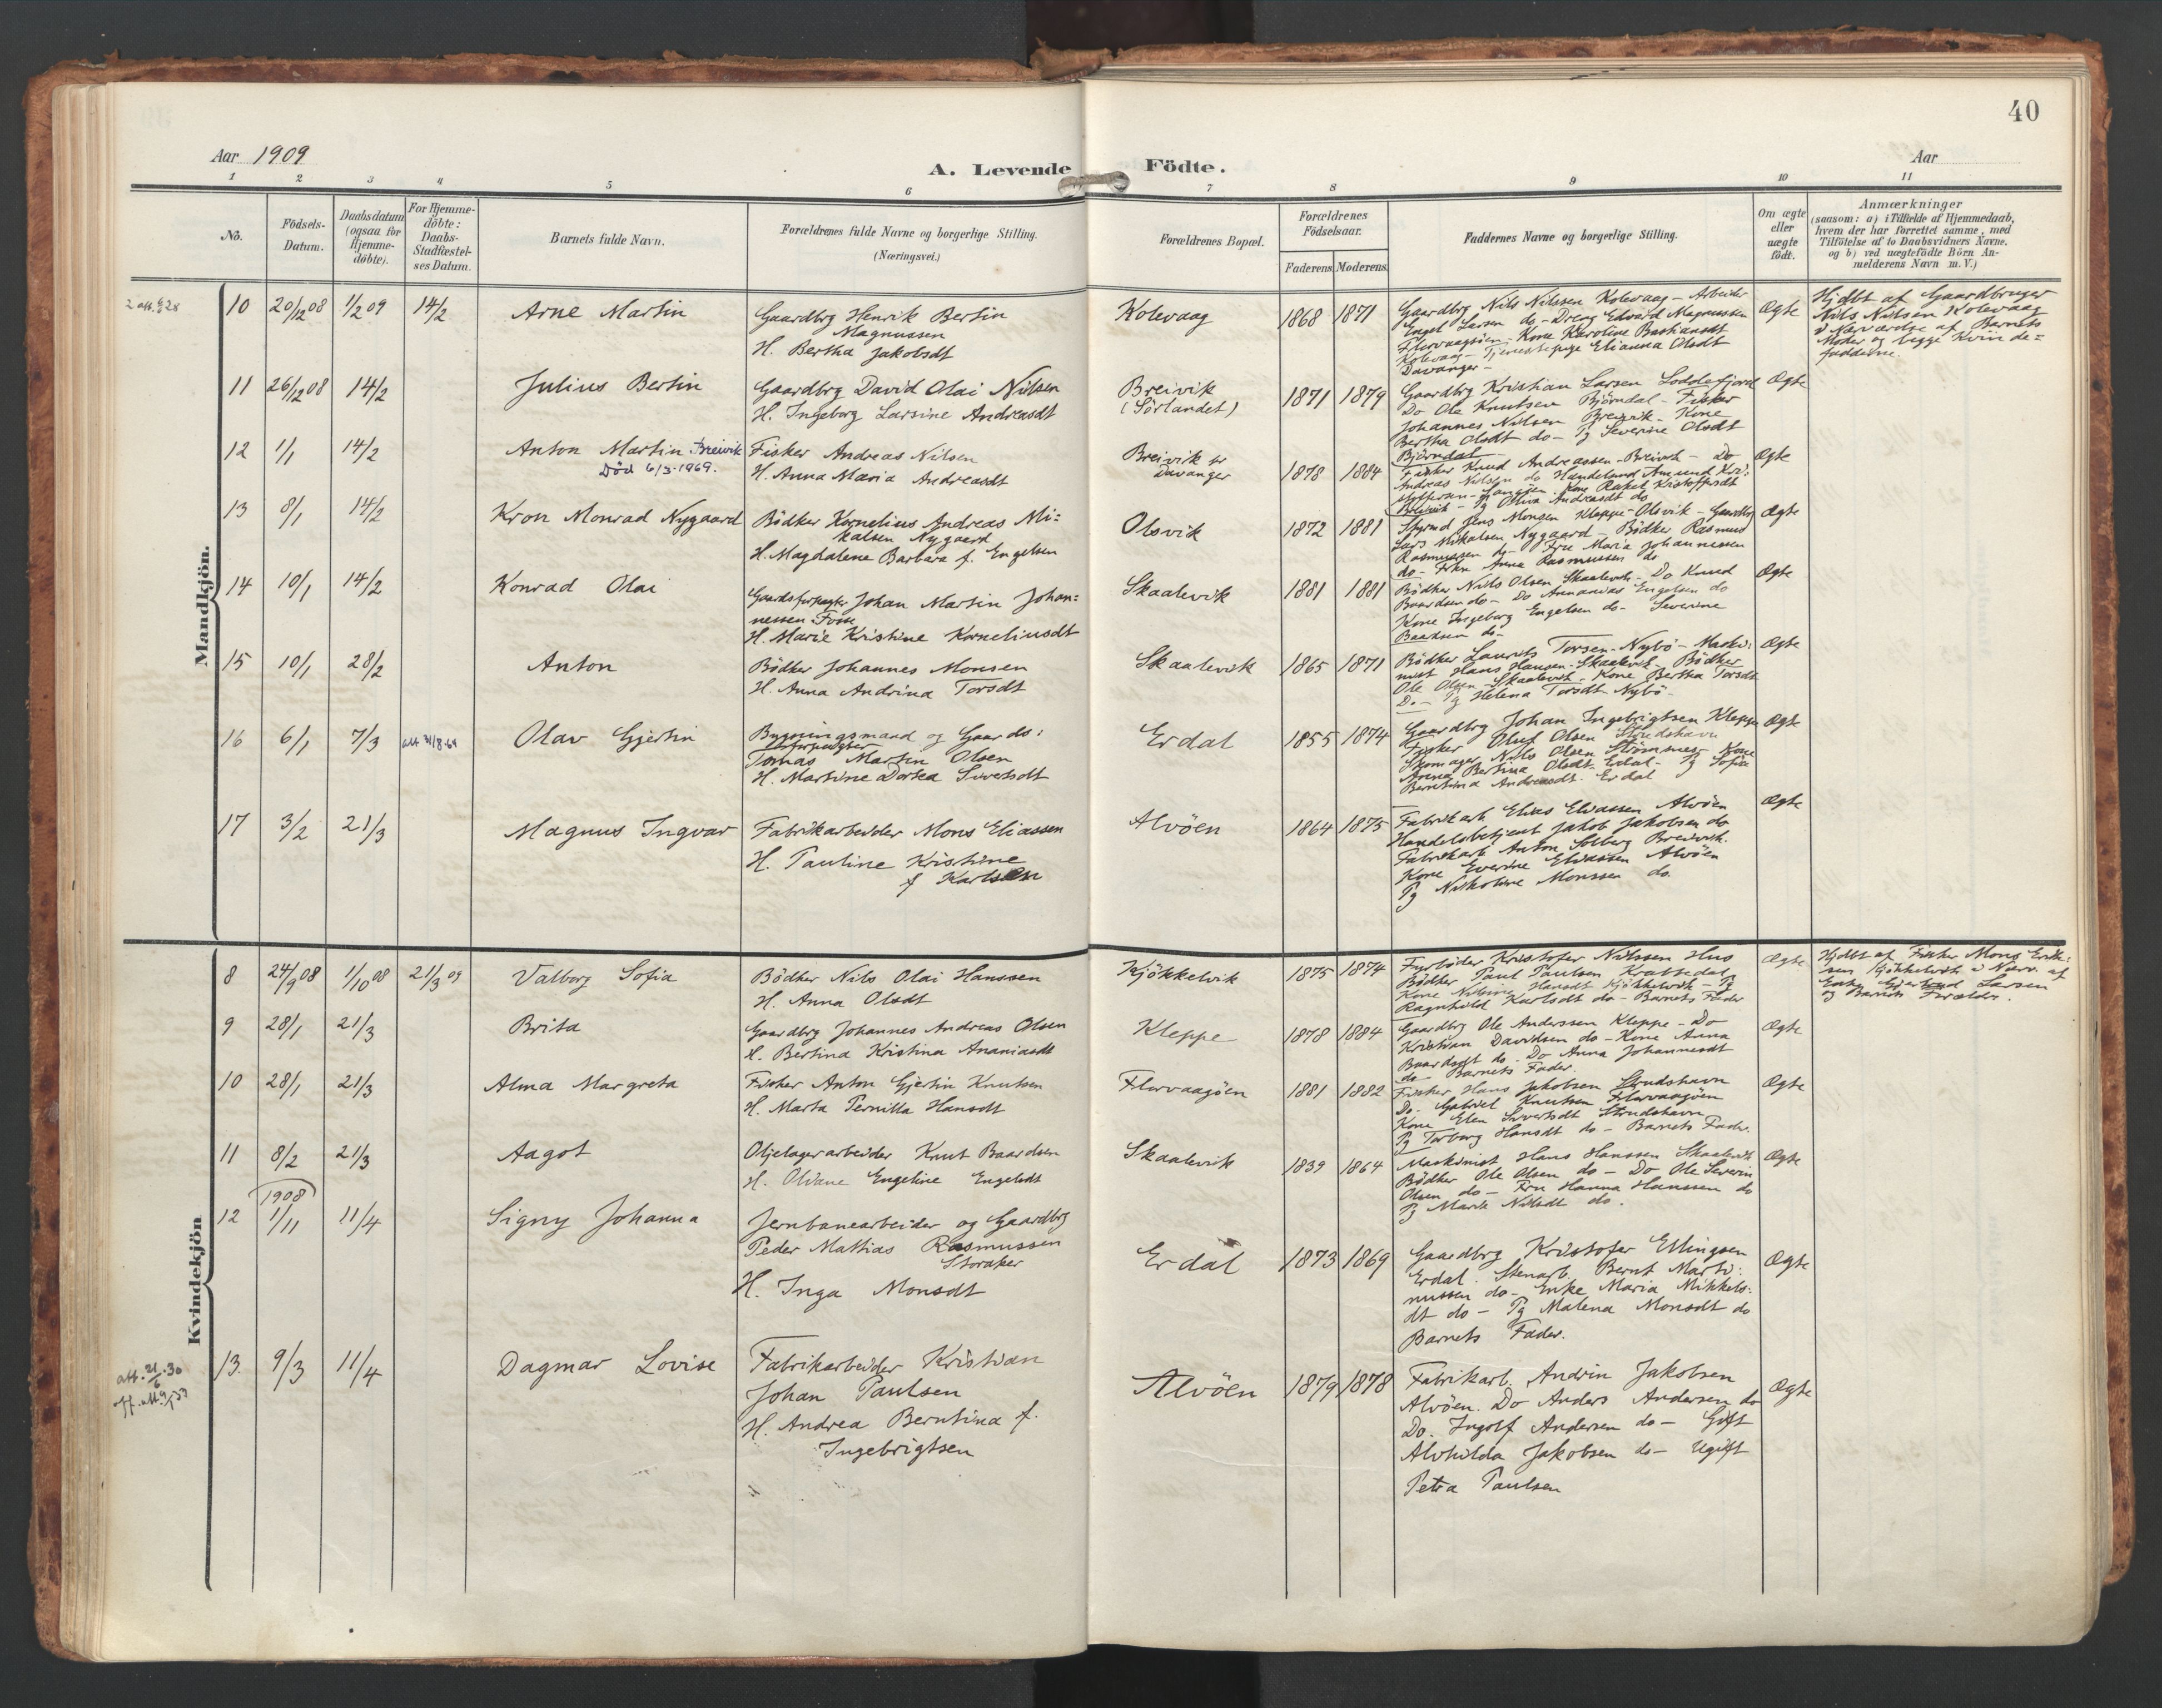 40
Aar 1909
A. Levende Födte.
Aar
1 2 3 4 5 6 7 8 9 10 11
No.
Födsels-Datum.
Daabsdatum (ogsaa for Hjemme-döbte).
For Hjemme-döbte: Daabs-Stadfæstel-ses Datum.
Barnets fulde Navn.
Forældrenes fulde Navne og borgerlige Stilling.
(Næringsvei.)
Forældrenes Bopæl.
Forældrenes Födselsaar.
Faderens. Moderens.
Faddernes Navne og borgerlige Stilling.
Om ægte eller uægte födt.
Anmærkninger
(saasom: a) i Tilfælde af Hjemmedaab, hvem der har forrettet samme, med Tilföielse af to Daabsvidners Navne. og b) ved uægtefödte Börn An-melderens Navn m. V.)
Mandkjön.
10 20/12 08 1/2 09 14/2 Arne Martin
Gaardbrg Henrik Bertin
Magnussen
H. Bertha Jakobsdt
Kolevaag 1868 1871
Gaardbrg Nils Nilssen Kolevaag - Arbeider
Engel Larsen do - Dreng Edvard Magnussen
Florvaagöen. Kone Karoline Bastiansdt
Kolevaag - Tjenestepige Elianna Olsdt
Davanger -
Ægte
Hjdbt af Gaardbruger
Nils Nilsen Kolevaag
i Nærværelse af Barnets
Moder og begge Kvinde=
fadderne.
11 26/12 08 14/2 Julius Bertin
Gaardbrg David Olai Nilsen
H. Ingeborg Larsine Andreasdt
Breivik
(Sörlandet)
1871 1879
Gaardbrg Kristian Larsen Loddefjord
Do Ole Knutsen Björndal - Fisker
Johannes Nilsen Breivik - Kone
Bertha Olsdt do - Pg Severine Olsdt
Björndal
Ægte
12 1/1 14/2 Anton Martin Breivik
Död 6/3-1969.
Fisker Andreas Nilsen
H. Anna Maria Andreasdt
Breivik pr
Davanger
1878 1884
Fisker Knud Andreassen - Breivik - Do
Andreas Nilsen do
Kone Rakel Kristoffersdt
Breivik - Pg Oliva Andreasdt do
Ægte
13 8/1 14/2 Kron Monrad Nygaard
Bödker Kornelius Andreas Mi=
kalsen Nygaard
H. Magdalene Barbara f. Engelsen
Olsvik 1872 1881
Styrmd Jens Monsen Kleppe - Olsvik - Gaardbrg
Lars Mikalsen Nygaard - Bödker Rasmus
Rasmussen do - Fru Maria Johannessen
do - Frkn Anna Rasmussen do
Ægte
14 10/1 14/2 Konrad Olai
Gaardsforpagter Johan Martin Johan=
nessen Fosse
H. Marie Kristine Korneliusdt
Skaalevik 1881 1881
Bödker Nils Olsen Skaalevik - Do Knud
Baardsen do - Do Annanias Engelsen do
Kone Ingeborg Engelsen do - Severine
Baardsen do -
Ægte
15 10/1 28/2 Anton
Bödker Johannes Monsen
H. Anna Andrina Torsdt
Skaalevik 1865 1871
Bödker Laurits Torsen - Nybö - Maski:
nist Hans Hansen - Skaalevik - Bödker
Ole Olsen - Skaalevik - Kone Bertha Torsdt
Do - Pg Helena Torsdt Nybö -
Ægte
16 6/1 7/3 Olav Gjertin
Bygningsmand og Gaards:
forpagter
Tomas Martin Olsen
H. Martine Dortea Sivertsdt
Erdal 1855 1874
Gaardbrg Johan Ingebrigtsen Kleppe
Fisker Oluf Olsen Strudshavn
Skomager Nils Olsen Strömmes Kone
Anna Bertina Olsdt Erdal - Pg Sofia
Berntina Andreasdt. Erdal
Ægte
17 3/2 21/3 Magnus Ingvar
Fabrikarbeider Mons Eliassen
H. Pauline Kristine
f Karlsen
Alvöen 1864 1875
Fabrikarb Elias Eliassen Alvöen
Handelsbetjent Jakob Jakobsen do
Fabrikarb Anton Solberg Breivik.
Kone Everine Eliassen Alvöen
Pg Nikoline Monssen do.
Ægte
Kvindekjön
8 24/9 08 1/10 08 21/3 09 Valborg Sofia
Bödker Nils Olai Hanssen
H. Anna Olsdt
Kjökkelvik 1875 1874
Fyrböder Kristofer Nilssen Hus
Bödker Paul Paulsen Krabbedal
Kone Nilsine Hansdt Kjökkelvik - Pg
Ragnhild Karlsdt do - Barnets Fader
Ægte
Hjdbt af Fisker Mons Erik-
sen Kjökkelvik i Nærv. af
Enke Gjertrud Larsen
og Barnets Forældre.
9 28/1 21/3 Brita
Gaardbrg Johannes Andreas Olsen
H. Bertina Kristina Ananiasdt
Kleppe 1878 1884
Gaardbrg Ole Anderssen Kleppe - Do
Kristian Davidsen do - Kone Anna
Baardsdt do - Do Anna Johannesdt
do - Barnets Fader.
Ægte
10 28/1 21/3 Alma Margreta
Fisker Anton Gjertin Knutsen
H. Marta Pernilla Hansdt
Florvaagöen 1881 1882
Fisker Hans Jakobsen Strudshavn
Do. Gabriel Knutsen Florvaagöen
Kone Elen Sivertsdt Strudshavn
Pg Torborg Hansdt do - Barnets Fader.
Ægte
11 8/2 21/3 Aagot
Oljelagerarbeider Knut Baardsen
H. Oliane Engeline Engelsdt
Skaalevik 1839 1864
Maskinist Hans Hanssen Skaalevik
Bödker Ole Olsen do - Do Ole Severin
Olsen do - Fru Hanna Hanssen do
Pg Marie Nilsdt do.
Ægte
12 1908 1/11 11/4 Signy Johanna
Jernbanearbeider og Gaardbrg
Peder Mathias Rasmussen
Storaker
H. Inga Monsdt
Erdal 1873 1869
Gaardbrg Kristofer Ellingsen
Erdal. Stenarb. Bernt Marti:
nussen do - Enke Maria Mikkels:
dt do - Pg Malena Monsdt do
Barnets Fader.
Ægte
att. 21/6.30
13. 9/3 11/4 Dagmar Lovise
Fabrikarbeider Kristian
Johan Paulsen
H. Andrea Berntina f.
Ingebrigtsen
Alvöen 1879 1878
Fabrikarb. Andrin Jakobsen
Alvöen. Do Anders Andersen do
Do. Ingolf Andersen do - Gift
Alvhilda Jakobsen do - Ugift
Petra Paulsen
Ægte